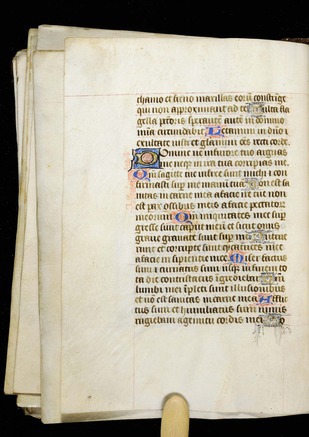 chamo et freno maxillas eorum constringe
qui non approximant ad te Multa fla
gella peccatoris sperantem autem in domino
misericordia circundabit Letamini in domino et
exultate iusti et gloriamini omnes recti corde.
Domine ne in furore tuo arguas
me neque in ira tua corripias me.
Quoniam sagitte tue infixe sunt michi et con
firmasti super me manum tuam Non est sa
nitas in carne mea a facie ire tue non
est pax ossibus meis a facie peccatorum
meorum Quoniam iniquitates mee super
gresse sunt caput meum et sicut onus
graue grauate sunt super me Putrue
runt et corrupte sunt cycatrices mee
a facie insipientie mee Miser factus
sum et curuatus sum usque in finem to
ta die contristatus ingrediebar Quoniam
lumbi mei impleti sunt illusionibus
et non est sanitas in carne mea Afflic
tus sum et humiliatus sum nimis
rugiebam a gemitu cordis mei Do